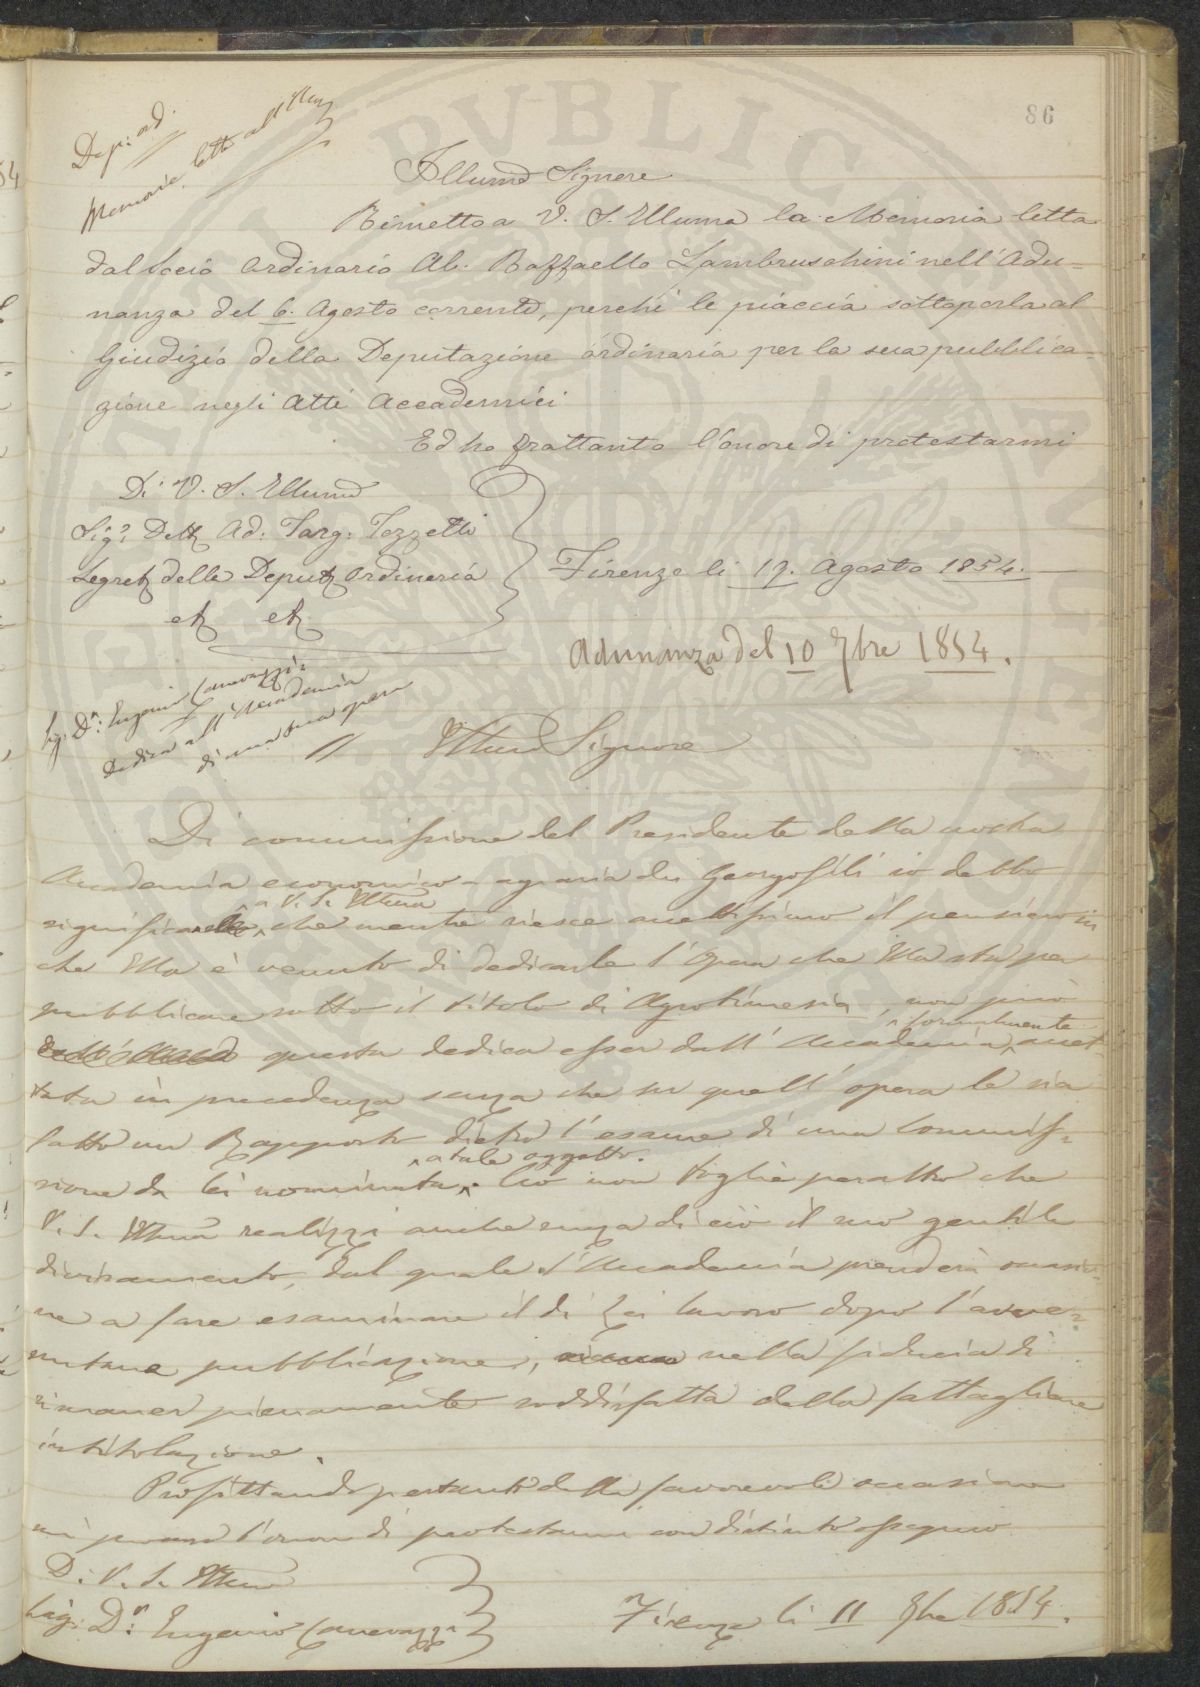 86
Dep.ne ord.
Memoria letta all'Acc.
Illumo Signore
Rimetto a V. S. Illuma la Memoria letta
dal Socio ordinario Ab. Raffaello Lambruschini nell'Adu=
nanza del 6. Agosto corrente, perchè le piaccia sottoporla al
Giudizio della Deputazione ordinaria per la sua pubblica=
zione negli Atti Accademici
Ed ho frattanto l'onore di protestarmi
Di V. S. Illumo
Sigr Dott Ad: Targ: Tozzetti
Segret della Deput ordinaria
et et
Firenze li 19. Agosto 1854.
Adunanza del 10 7bre 1854.
Sig. Dr. Eugenio Canevazzi
Dedica all'Accademia
di una sua opera
Illumo Signore
Di commissione del Presidente della nostra
Accademia economico-agraria dei Georgofili io debbo
significarle a V. S. Illuma, che mentre riesce accettissimo il pensiero in
che Ella è venuto di dedicarle l'opera che Ella sta per
pubblicare sotto il titolo di Agrotimesia, non può
questa dedica esser dall'Accademia formalmente accet=
tata in precedenza senza che su quell'opera le sia
fatto un Rapporto dietro l'esame di una Commis=
sione da lei nominata a tale oggetto. Ciò non toglie peraltro che
V. S. Illuma realizzi anche senza di ciò il suo gentile
divisamento, dal quale l'Accademia prenderà occasio=
ne a fare esaminare il di Lei lavoro dopo l'avve=
nutane pubblicazione, nella fiducia di
rimaner pienamente soddisfatta della fattagliene
intitolazione.
Profittando pertanto della favorevole occasione
mi procuro l'onore di protestarmi con distinto ossequio
Di V. S. Illuma
Sig. Dr. Eugenio Canevazzi
Firenze li 11 7bre 1854.